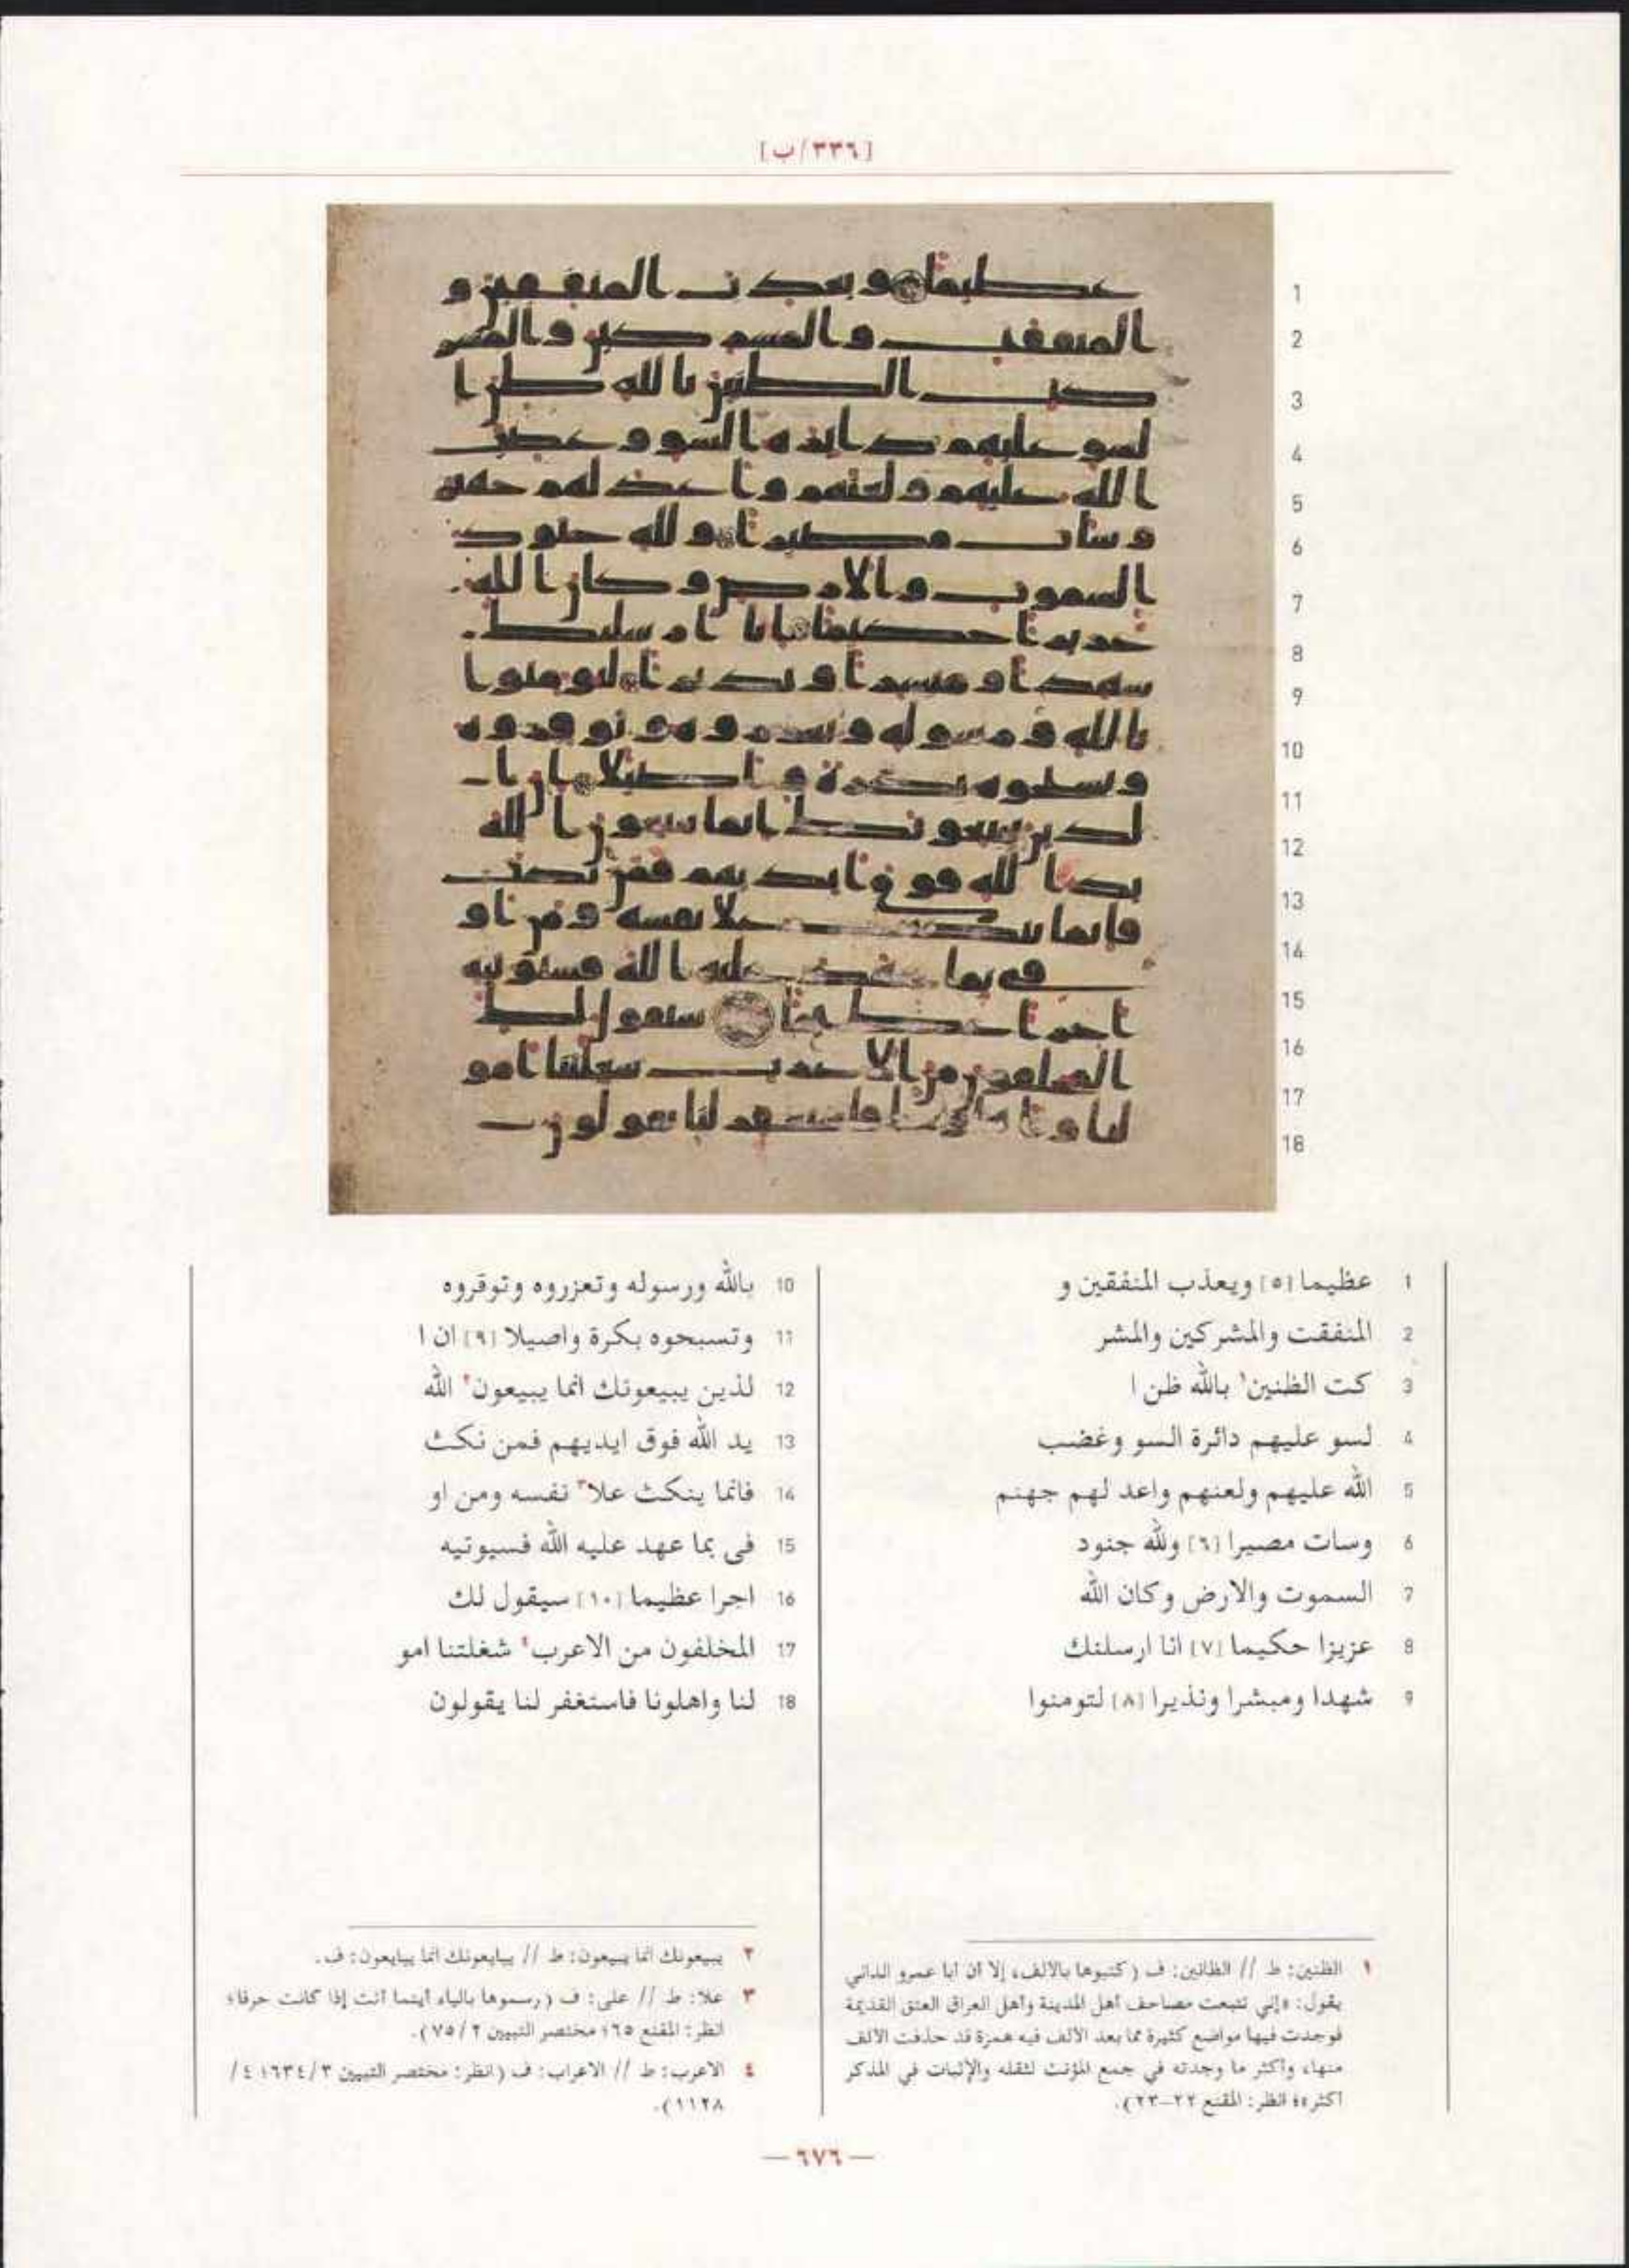 [٣٣٦/ب]
1
2
3
4
5
6
7
8
9
10
11
12
13
14
15
16
17
18
1 عظيما [٥] ويعذب المنفقين و
2 المنفقت والمشركين والمشر
3 كت الظنين١ بالله ظن ا
4 لسو عليهم دائرة السو وغضب
5 الله عليهم ولعنهم واعد لهم جهنم
6 وسات مصيرا [٦] ولله جنود
7 السموت والارض وكان الله
8 عزيزا حكيما [٧] انا ارسلنك
9 شهدا ومبشرا ونذيرا [٨] لتومنوا
10 بالله ورسوله وتعزروه وتوقروه
11 وتسبحوه بكرة واصيلا [٩] ان ا
12 لذين يبيعونك انما يبيعون٢ الله
13 يد الله فوق ايديهم فمن نكث
14 فانما ينكث علا٣ نفسه ومن او
15 فى بما عهد عليه الله فسيوتيه
16 اجرا عظيما [١٠] سيقول لك
17 المخلفون من الاعرب٤ شغلتنا امو
18 لنا واهلونا فاستغفر لنا يقولون
١ الظنين: ط // الظانين: ف (كتبوها بالالف، إلا ان ابا عمرو الداني
يقول: «إني تتبعت مصاحف أهل المدينة وأهل العراق العتق القديمة
فوجدت فيها مواضع كثيرة مما بعد الألف فيه همزة قد حذفت الألف
منها، وأكثر ما وجدته في جمع المؤنث لثقله والإثبات في المذكر
اكثر»؛ انظر: المقنع ٢٢–٢٣).
٢ يبيعونك انما يبيعون: ط // يبايعونك انما يبايعون: ف.
٣ علا: ط // على: ف (رسموها بالياء أينما أتت إذا كانت حرفا؛
انظر: المقنع ٦٥؛ مختصر التبيين ٢/ ٧٥).
٤ الاعرب: ط // الاعراب: ف (انظر: مختصر التبيين ٣/ ٦٣٤؛ ٤/
١١٢٨).
— ٦٧٦ —